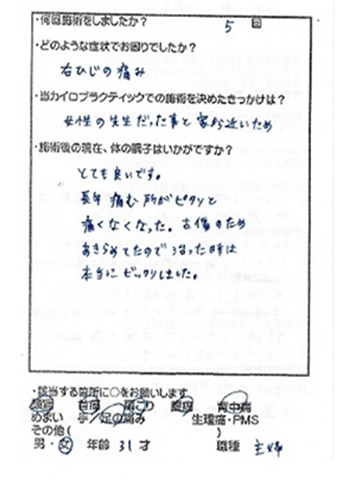 ・何回施術をしましたか？ 5 回
・どのような症状でお困りでしたか？
右ひじの痛み
・当カイロプラクティックでの施術を決めたきっかけは？
女性の先生だった事と家から近いため
・施術後の現在、体の調子はいかがですか？
とても良いです。
長年痛む所がピタリと
痛くなくなった。古傷のため
あきらめてたので治った時は
本当にビックリしました。
・該当する箇所に○をお願いします
頭痛 首痛 肩こり 腰痛 背中痛
めまい 手／足の痛み 生理痛・PMS
その他( )
男・女 年齢 31才 職種 主婦